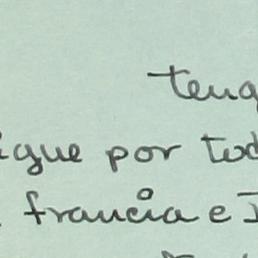 teng
igue por tod
francia e I